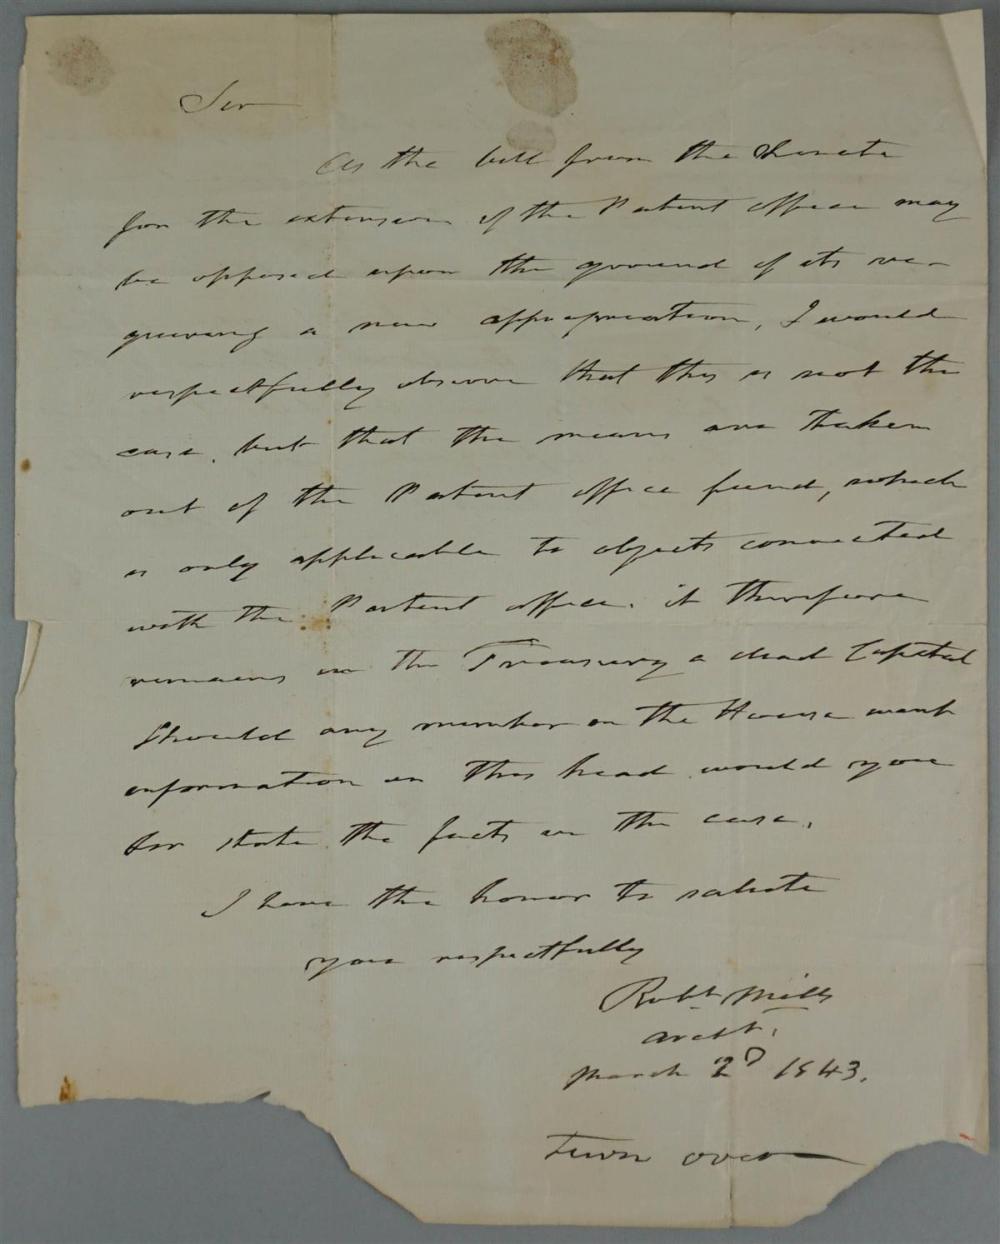 Sir
As the bill from the Senate
for the extension of the Patent office may
be opposed upon the ground of its re-
quiring a new appropriation, I would
respectfully observe that this is not the
case, but that the means are taken
out of the Patent office fund, which
is only applicable to objects connected
with the Patent office. it therefore
remains in the Treasury a dead Capital
Should any member in the House want
information on this head would you
Sir state the facts in the case.
I have the honor to salute
you respectfully
Robt Mills
Archt.
March 2D 1843.
Turn over